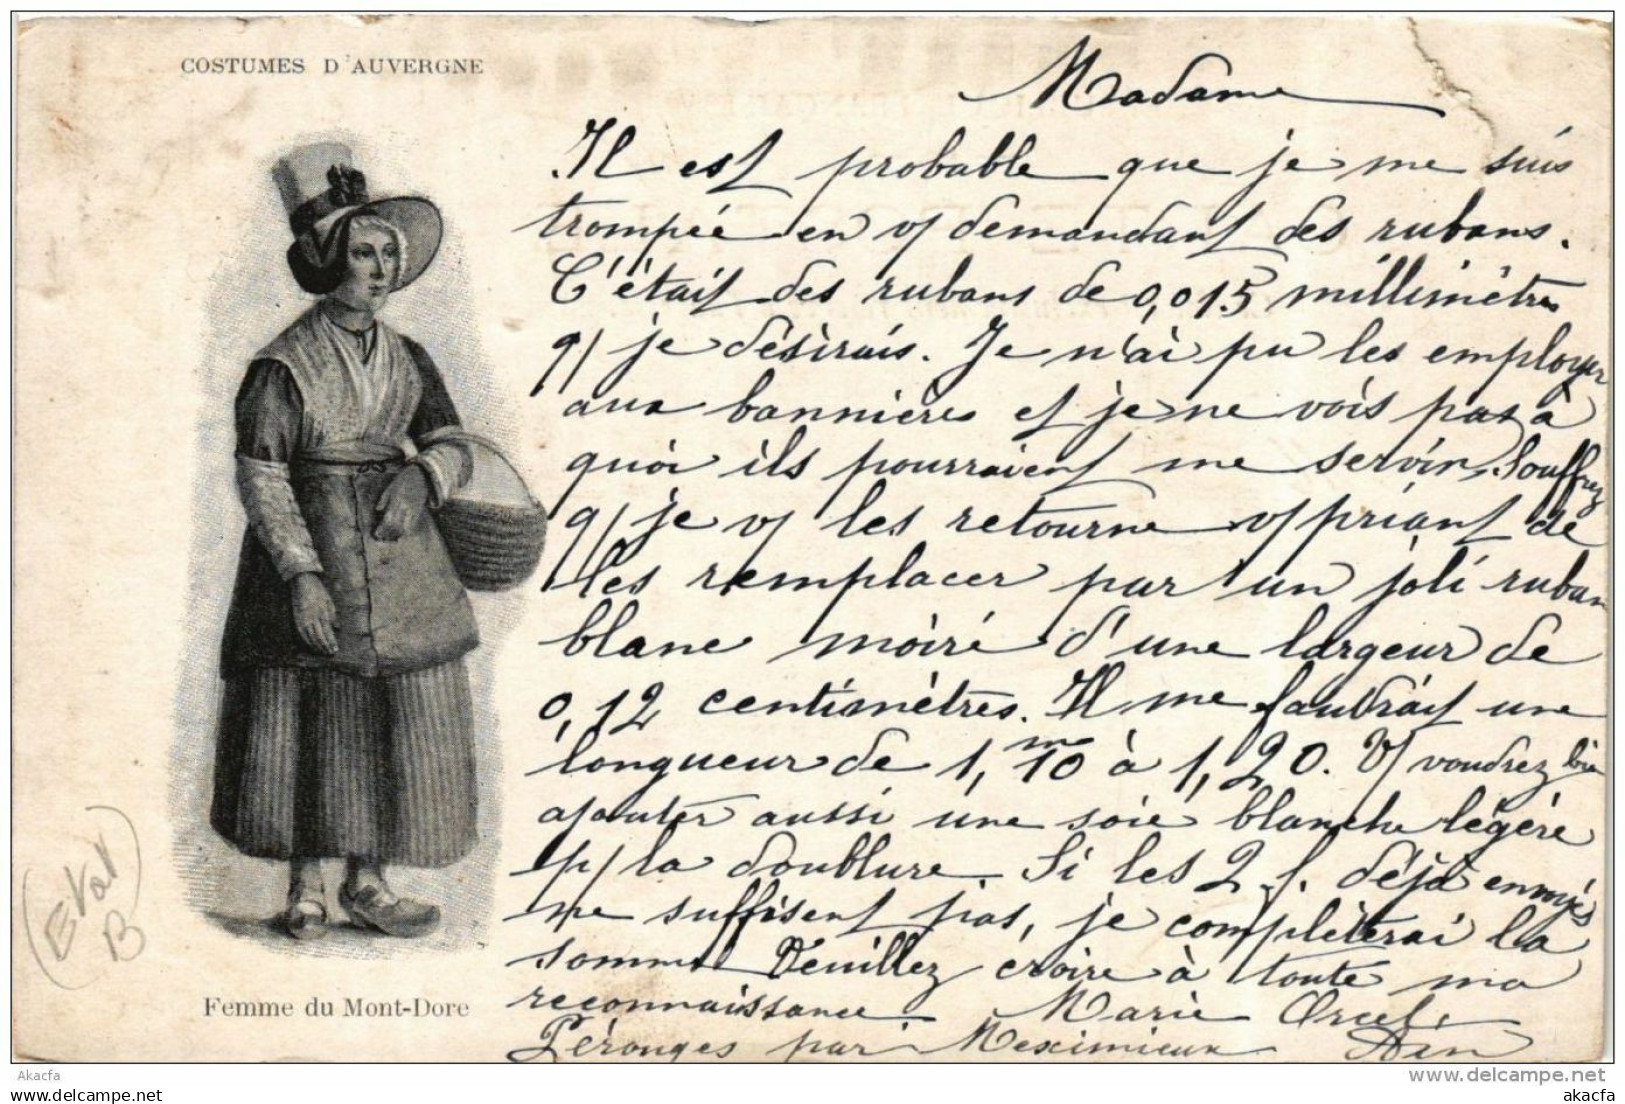 COSTUMES D'AUVERGNE
Madame
Il est probable que je me suis
trompée en vs demandant des rubans.
C'était des rubans de 0,015 millimètres
q/ je désirais. Je n'ai pu les employer
aux bannières et je ne vois pas à
quoi ils pourraient me servir. Souffrez
q/ je vs les retourne vs priant de
les remplacer par un joli ruban
blanc moiré d'une largeur de
0,12 centimètres. Il me faudrait une
longueur de 1,m10 à 1,20. Vs voudrez bien
ajouter aussi une soie blanche légère
p/ la doublure. Si les 2 f. déjà envoyés
me suffisent pas, je complèterai la
somme Veuillez croire à toute ma
reconnaissance. Marie Orcel
Pérouges par Meximieux Ain
Femme du Mont-Dore
(Etat
B
Akacfa
www.delcampe.net
akacfa